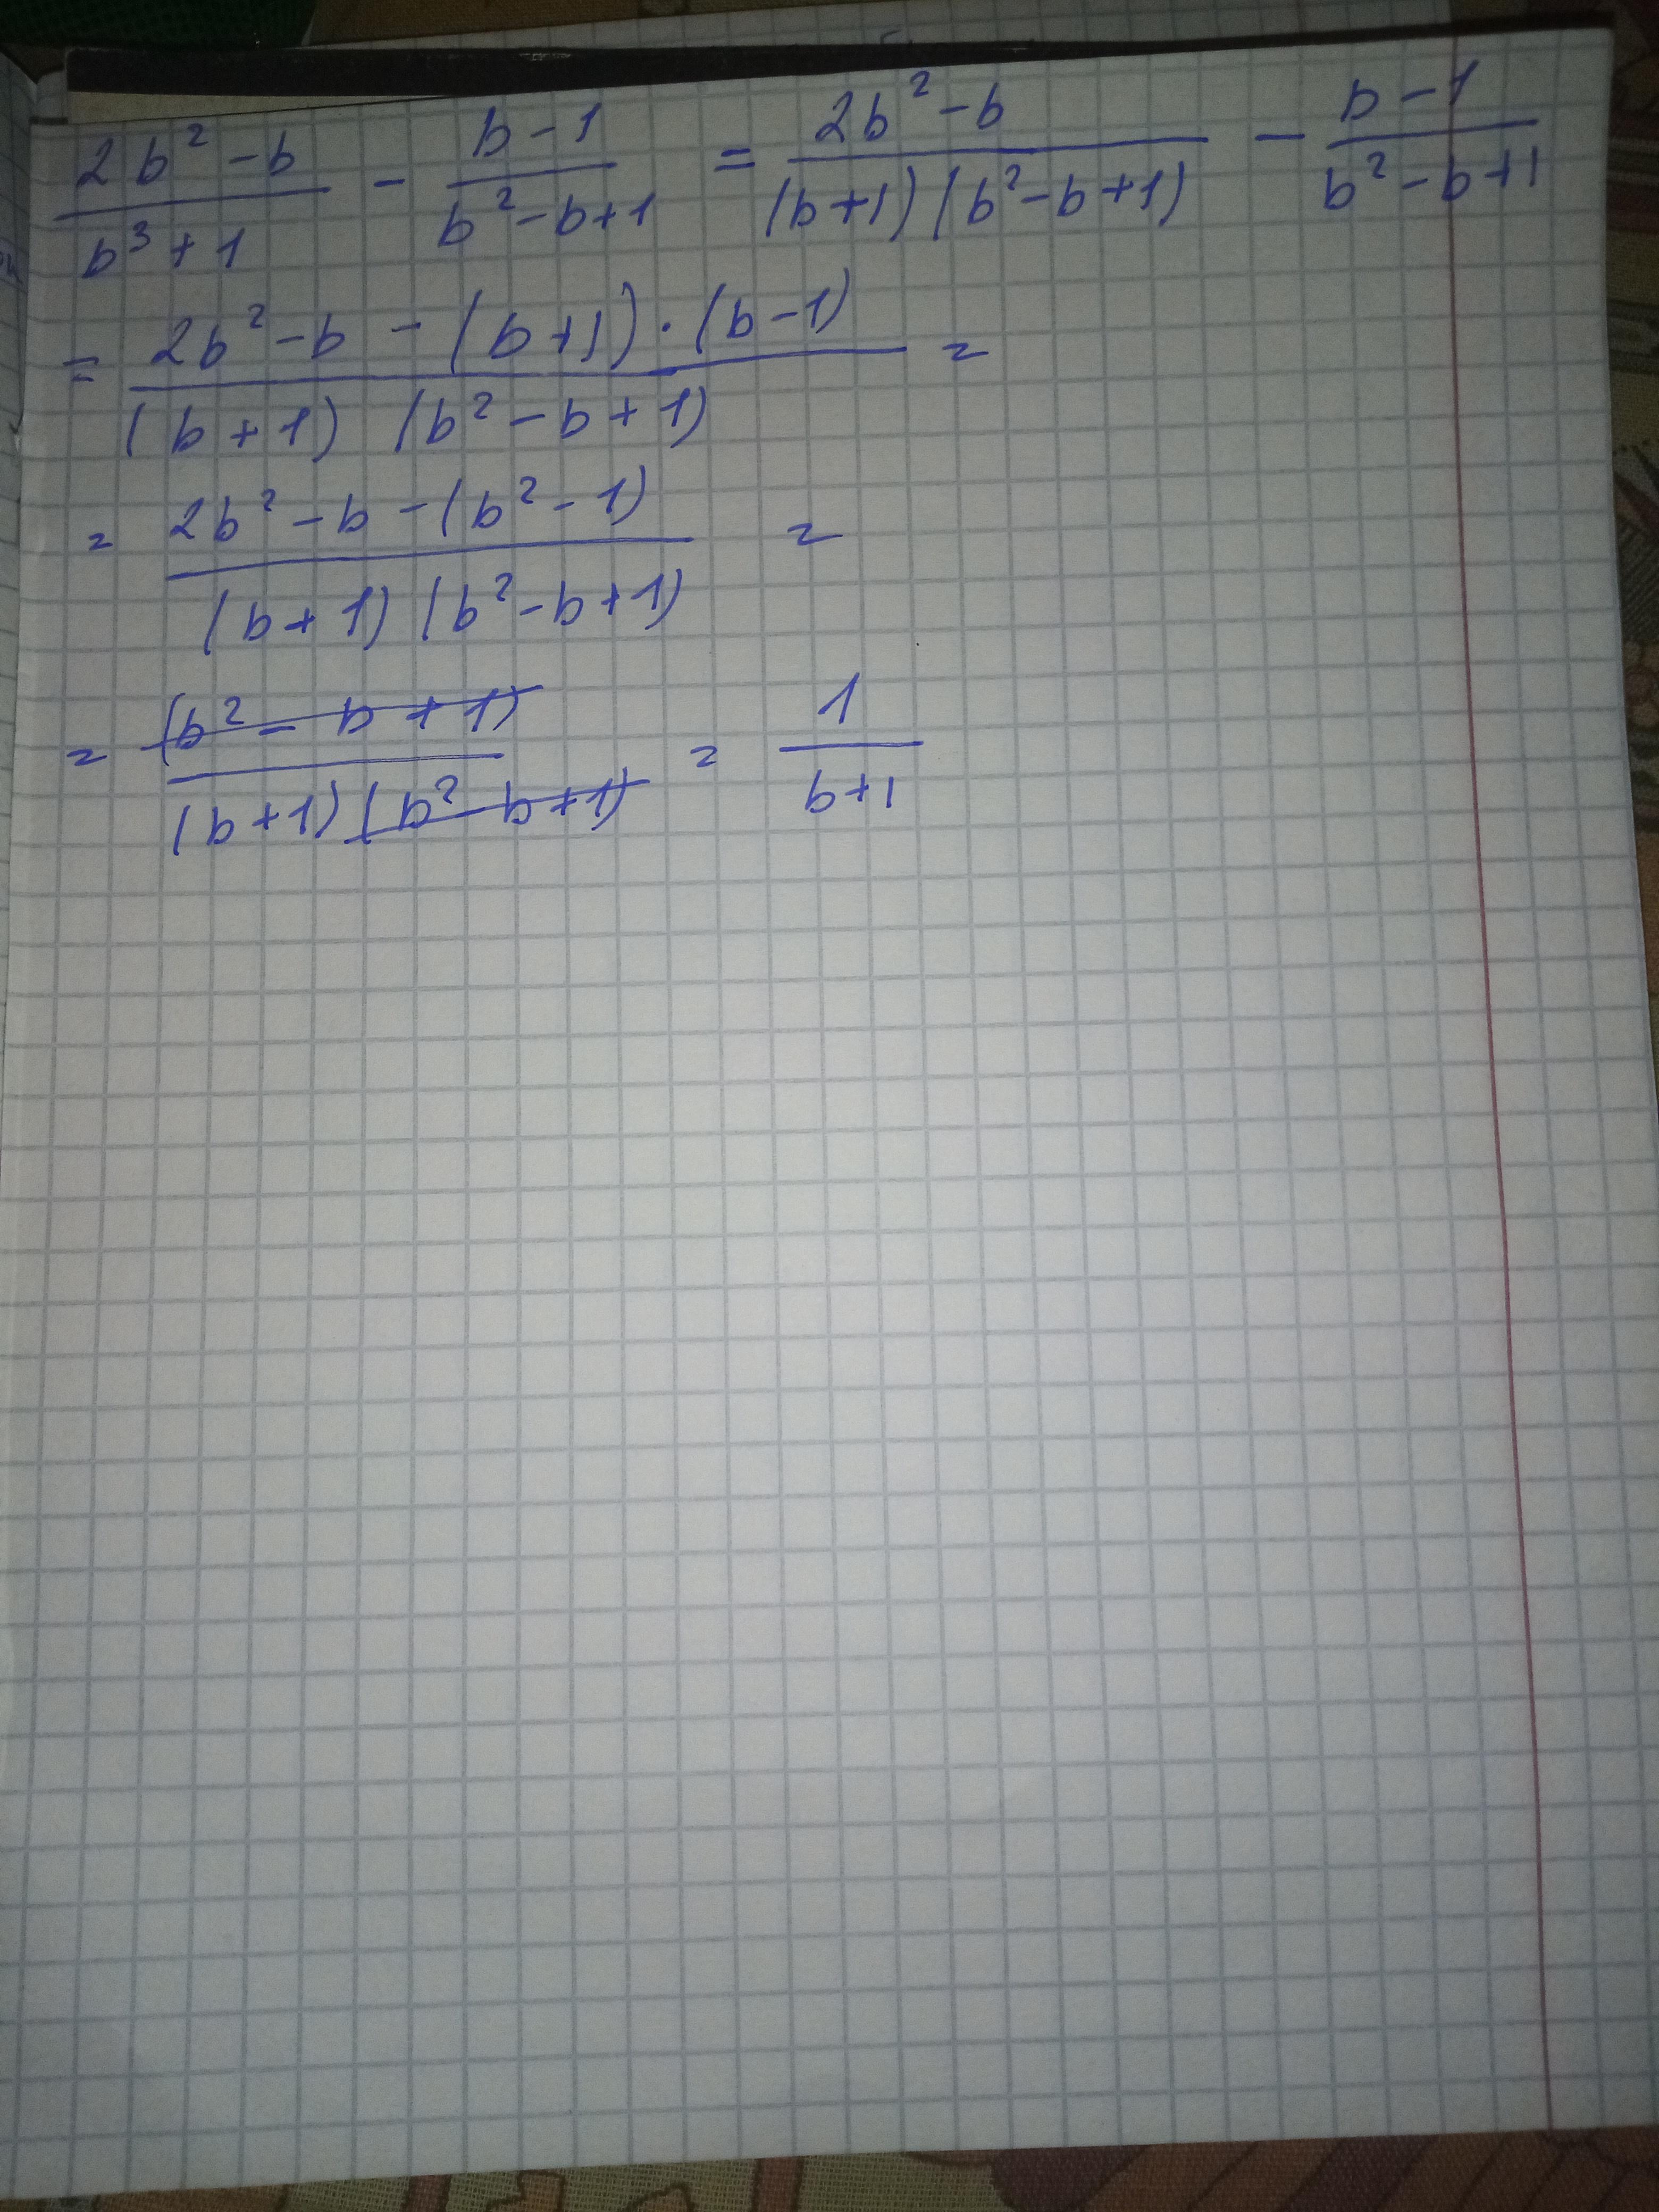 (2b² - b)/(b³ + 1) - (b - 1)/(b² - b + 1) = (2b² - b)/((b + 1)(b² - b + 1)) - (b - 1)/(b² - b + 1)
= (2b² - b - (b + 1) · (b - 1))/((b + 1)(b² - b + 1)) =
= (2b² - b - (b² - 1))/((b + 1)(b² - b + 1)) =
= (b² - b + 1)/((b + 1)(b² - b + 1)) = 1/(b + 1)